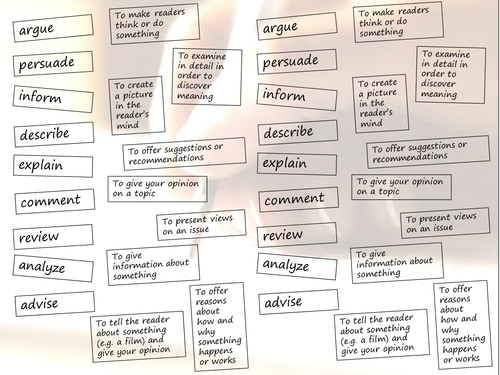 argue
persuade
inform
describe
explain
comment
review
analyze
advise
To make readers
think or do
something
To examine
in detail in
order to
discover
meaning
To create
a picture
in the
reader's
mind
To offer suggestions or
recommendations
To give your opinion
on a topic
To present views
on an issue
To give
information about
something
To offer
reasons
about
how and
why
something
happens
or works
To tell the reader
about something
(e.g. a film) and
give your opinion
argue
persuade
inform
describe
explain
comment
review
analyze
advise
To make readers
think or do
something
To examine
in detail in
order to
discover
meaning
To create
a picture
in the
reader's
mind
To offer suggestions or
recommendations
To give your opinion
on a topic
To present views
on an issue
To give
information about
something
To offer
reasons
about
how and
why
something
happens
or works
To tell the reader
about something
(e.g. a film) and
give your opinion